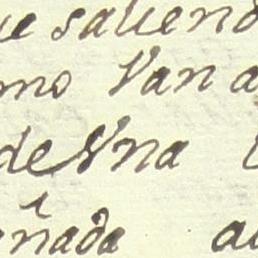 ue saliend
mo Van a
de Vna
eñada a